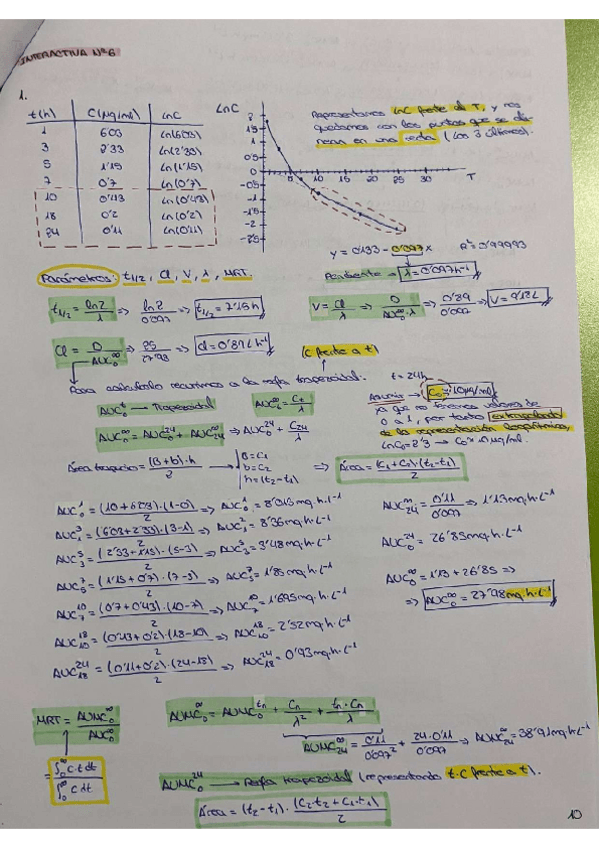 INTERACTIVA Nº6
1.
t(h) C(µg/ml) LnC
1 6'03 Ln(6'03)
3 2'33 Ln(2'33)
5 1'15 Ln(1'15)
7 0'7 Ln(0'7)
10 0'43 Ln(0'43)
18 0'2 Ln(0'2)
24 0'11 Ln(0'11)
LnC
2
1
0'5
0
-0'5
-1
-1'5
-2
-2'5
5 10 15 20 25 30 T
Representamos LnC frente de T, y nos
quedamos con los puntos que se
en una recta (Los 3 últimos).
y = 0'133 - 0'097x R² = 0'99993
Pendiente → λ = 0'097h⁻¹
Parámetros: t1/2, Cl, V, λ, MRT.
t1/2 = ln2/λ => ln2/0'097 => t1/2 = 7'15 h
V = Cl/λ => D/(AUC₀^∞·λ) => 0'89/0'097 => V = 9'18 L
Cl = D/AUC₀^∞ => 25/27'98 => Cl = 0'89 L h⁻¹
(C frente a t)
Para calcularlo recurrimos a la regla trapezoidal:
AUC₀^t → Trapezoidal
AUCt^∞ = Ct/λ
t = 24h
AUC₀^∞ = AUC₀^24 + AUC24^∞ => AUC₀^24 + C24/λ
Asumir → C₀ ≈ 10µg/ml
ya que no tenemos valores de
0 a 1, por tanto extrapolando
de la representación logarítmica,
LnC₀ = 2'3 → C₀ ≈ 10 µg/ml.
Área trapecio = (B+b)·h/2 →
B = C1
b = C2
h = (t2-t1)
=> Área = (C1+C2)·(t2-t1)/2
AUC₀^1 = (10+6'03)·(1-0)/2 => AUC₀^1 = 8'015mg·h·L⁻¹
AUC1^3 = (6'03+2'33)·(3-1)/2 => AUC1^3 = 8'36mg·h·L⁻¹
AUC3^5 = (2'33+1'15)·(5-3)/2 => AUC3^5 = 3'48mg·h·L⁻¹
AUC5^7 = (1'15+0'7)·(7-5)/2 => AUC5^7 = 1'85mg·h·L⁻¹
AUC7^10 = (0'7+0'43)·(10-7)/2 => AUC7^10 = 1'695mg·h·L⁻¹
AUC10^18 = (0'43+0'2)·(18-10)/2 => AUC10^18 = 2'52mg·h·L⁻¹
AUC18^24 = (0'11+0'2)·(24-18)/2 => AUC18^24 = 0'93mg·h·L⁻¹
AUC24^∞ = 0'11/0'097 => 1'13mg·h·L⁻¹
AUC₀^24 = 26'85mg·h·L⁻¹
AUC₀^∞ = 1'13 + 26'85 =>
=> AUC₀^∞ = 27'98mg·h·L⁻¹
MRT = AUMC₀^∞/AUC₀^∞
= ∫₀^∞ C·t dt / ∫₀^∞ C dt
AUMC₀^∞ = AUMC₀^tn + Cn/λ² + tn·Cn/λ
AUMC24^∞ = 0'11/0'097² + 24·0'11/0'097 => AUMC24^∞ = 38'91mg·h·L⁻¹
AUMC₀^24 → Regla trapezoidal (representando t·C frente a t).
Área = (t2-t1)·(C2·t2+C1·t1)/2
10